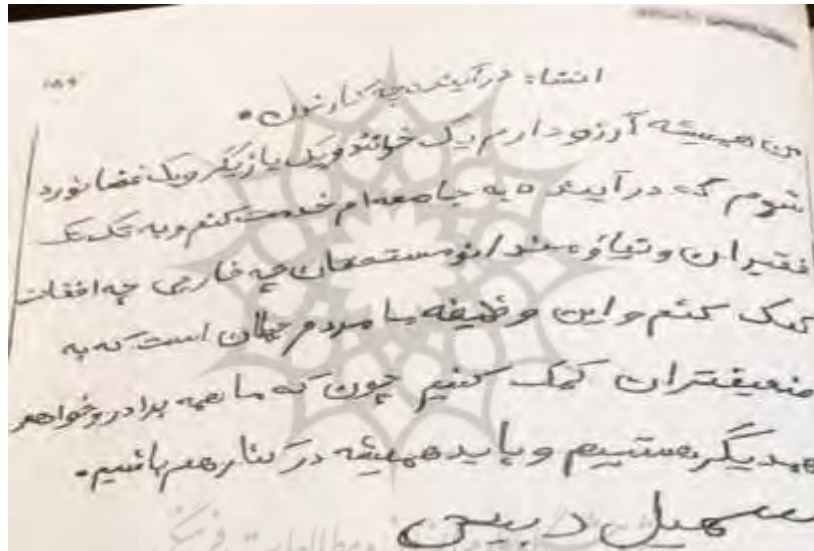 انشاء: در آینده چه کاره شوی.
من همیشه آرزو دارم یک خواننده و یک بازیگر و یک فضانورد
شوم که در آینده به جامعه‌ام خدمت کنم و به تک تک
فقیران و مستمدان چه فارس چه افغان
کمک کنم و این وظیفه ما مردم جهان است که به
ضعیفتران کمک کنیم چون که ما همه برادر و خواهر
همدیگر هستیم و باید همیشه در کنار هم باشیم.
سهیل دبیس